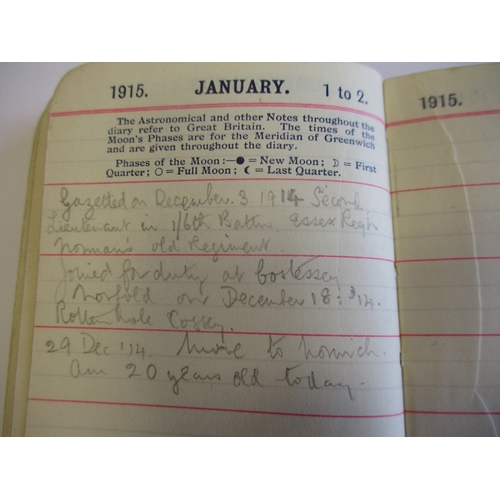 1915. JANUARY. 1 to 2.
The Astronomical and other Notes throughout the
diary refer to Great Britain. The times of the
Moon's Phases are for the Meridian of Greenwich
and are given throughout the diary.
Phases of the Moon:—● = New Moon; ☽ = First
Quarter; ○ = Full Moon; ☾ = Last Quarter.
Gazetted on December. 3. 1914 Second
Lieutenant in 1/6th Battn. Essex Regt.
Norman's old Regiment.
Joined for duty at Costessey
Norfolk on December 18: 14.
Cossey.
29 Dec '14. Move to Norwich.
Am 20 years old today.
1915.